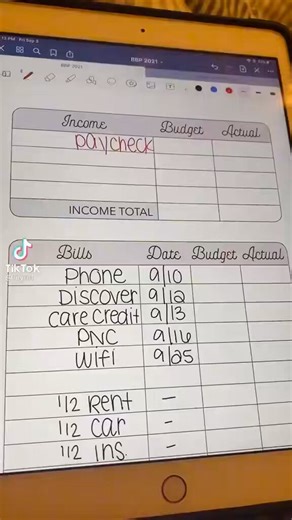 BBP 2021
BBP 2021
Income Budget Actual
paycheck
INCOME TOTAL
TikTok
Bills Date Budget Actual
Phone 9/10
Discover 9/12
Care Credit 9/13
PNC 9/16
Wifi 9/25
1/2 Rent -
1/2 Car -
1/2 Ins. -